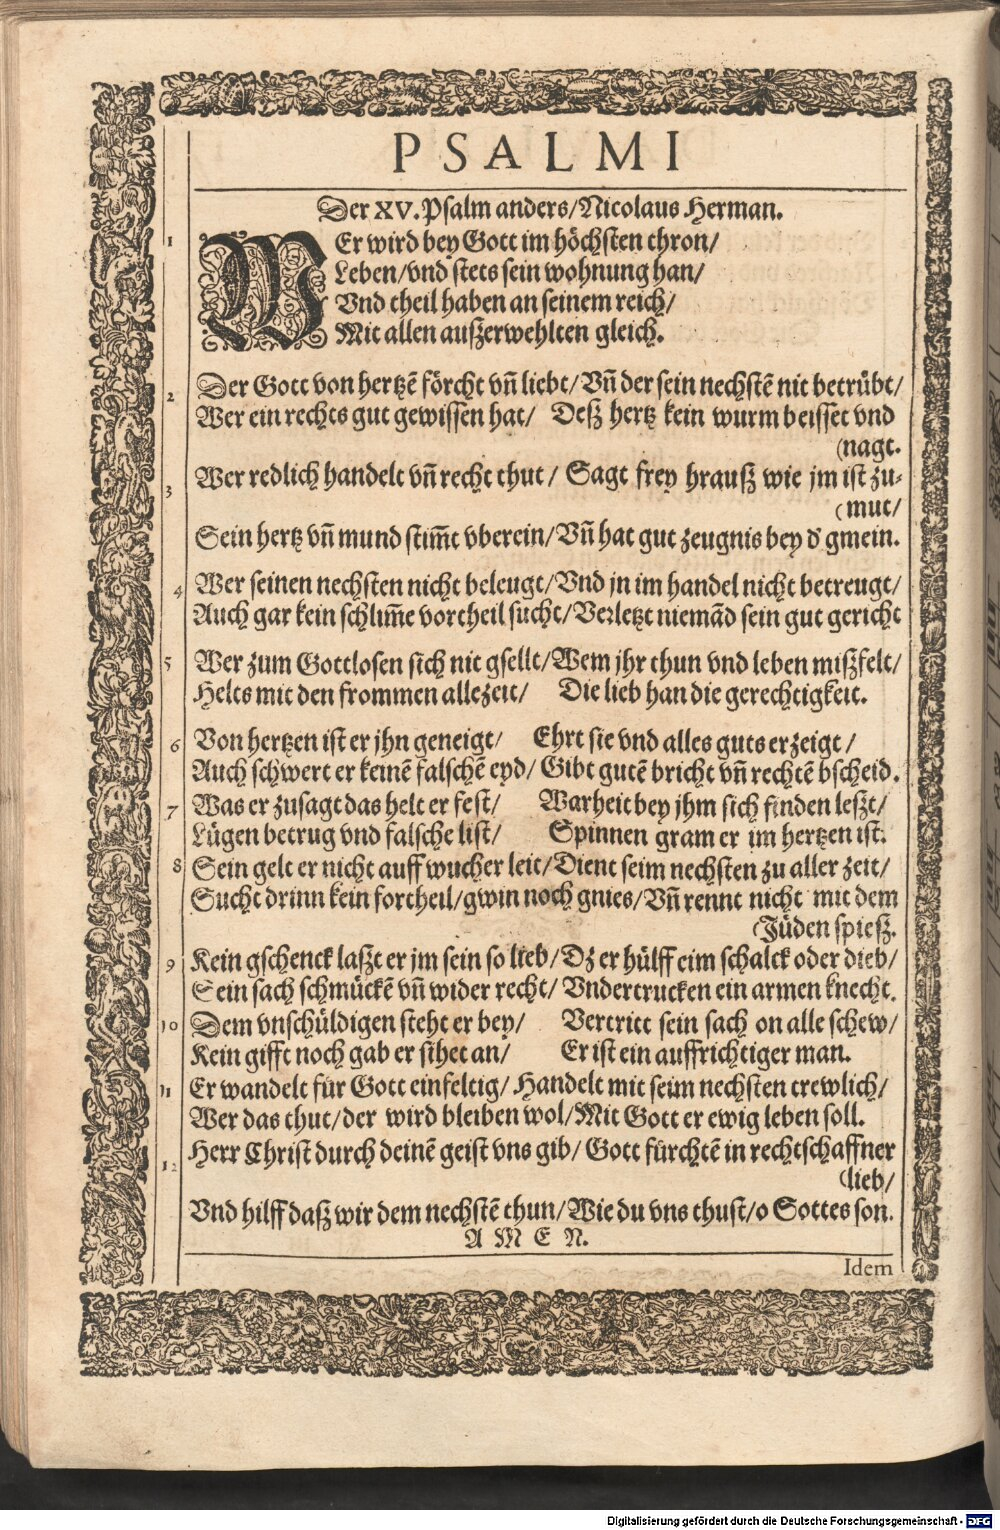 PSALMI
Der XV. Psalm anders/Nicolaus Herman.
1 WEr wird bey Gott im höchsten thron/
Leben/vnd stets sein wohnung han/
Vnd theil haben an seinem reich/
Mit allen außerwehlten gleich.
2 Der Gott von hertzē förcht vn̄ liebt/Vn̄ der sein nechstē nit betrübt/
Wer ein rechts gut gewissen hat/ Deß hertz kein wurm beisset vnd
(nagt.
3 Wer redlich handelt vn̄ recht thut/ Sagt frey hrauß wie jm ist zu-
(mut/
Sein hertz vn̄ mund stim̄t vberein/Vn̄ hat gut zeugnis bey d' gmein.
4 Wer seinen nechsten nicht beleugt/Vnd jn im handel nicht betreugt/
Auch gar kein schlim̄e vortheil sucht/Verletzt niemād sein gut gericht
5 Wer zum Gottlosen sich nit gsellt/Wem jhr thun vnd leben mißfelt/
Helts mit den frommen allezeit/ Die lieb han die gerechtigkeit.
6 Von hertzen ist er jhn geneigt/ Ehrt sie vnd alles guts erzeigt/
Auch schwert er keinē falschē eyd/Gibt gutē bricht vn̄ rechtē bscheid.
7 Was er zusagt das helt er fest/ Warheit bey jhm sich finden leßt/
Lügen betrug vnd falsche list/ Spinnen gram er im hertzen ist.
8 Sein gelt er nicht auff wucher leit/Dient seim nechsten zu aller zeit/
Sucht drinn kein fortheil/gwin noch gnies/Vn̄ rennt nicht mit dem
(Jüden spieß.
9 Kein gschenck laßt er jm sein so lieb/Dz er hülff eim schalck oder dieb/
Sein sach schmückē vn̄ wider recht/Vndertrucken ein armen knecht.
10 Dem vnschüldigen steht er bey/ Vertritt sein sach on alle schew/
Kein gifft noch gab er sihet an/ Er ist ein auffrichtiger man.
11 Er wandelt für Gott einfeltig/ Handelt mit seim nechsten trewlich/
Wer das thut/der wird bleiben wol/Mit Gott er ewig leben soll.
12 Herr Christ durch deinē geist vns gib/ Gott fürchtē in rechtschaffner
(lieb/
Vnd hilff daß wir dem nechstē thun/Wie du vns thust/o Gottes son.
AMEN.
Idem
Digitalisierung gefördert durch die Deutsche Forschungsgemeinschaft - DFG